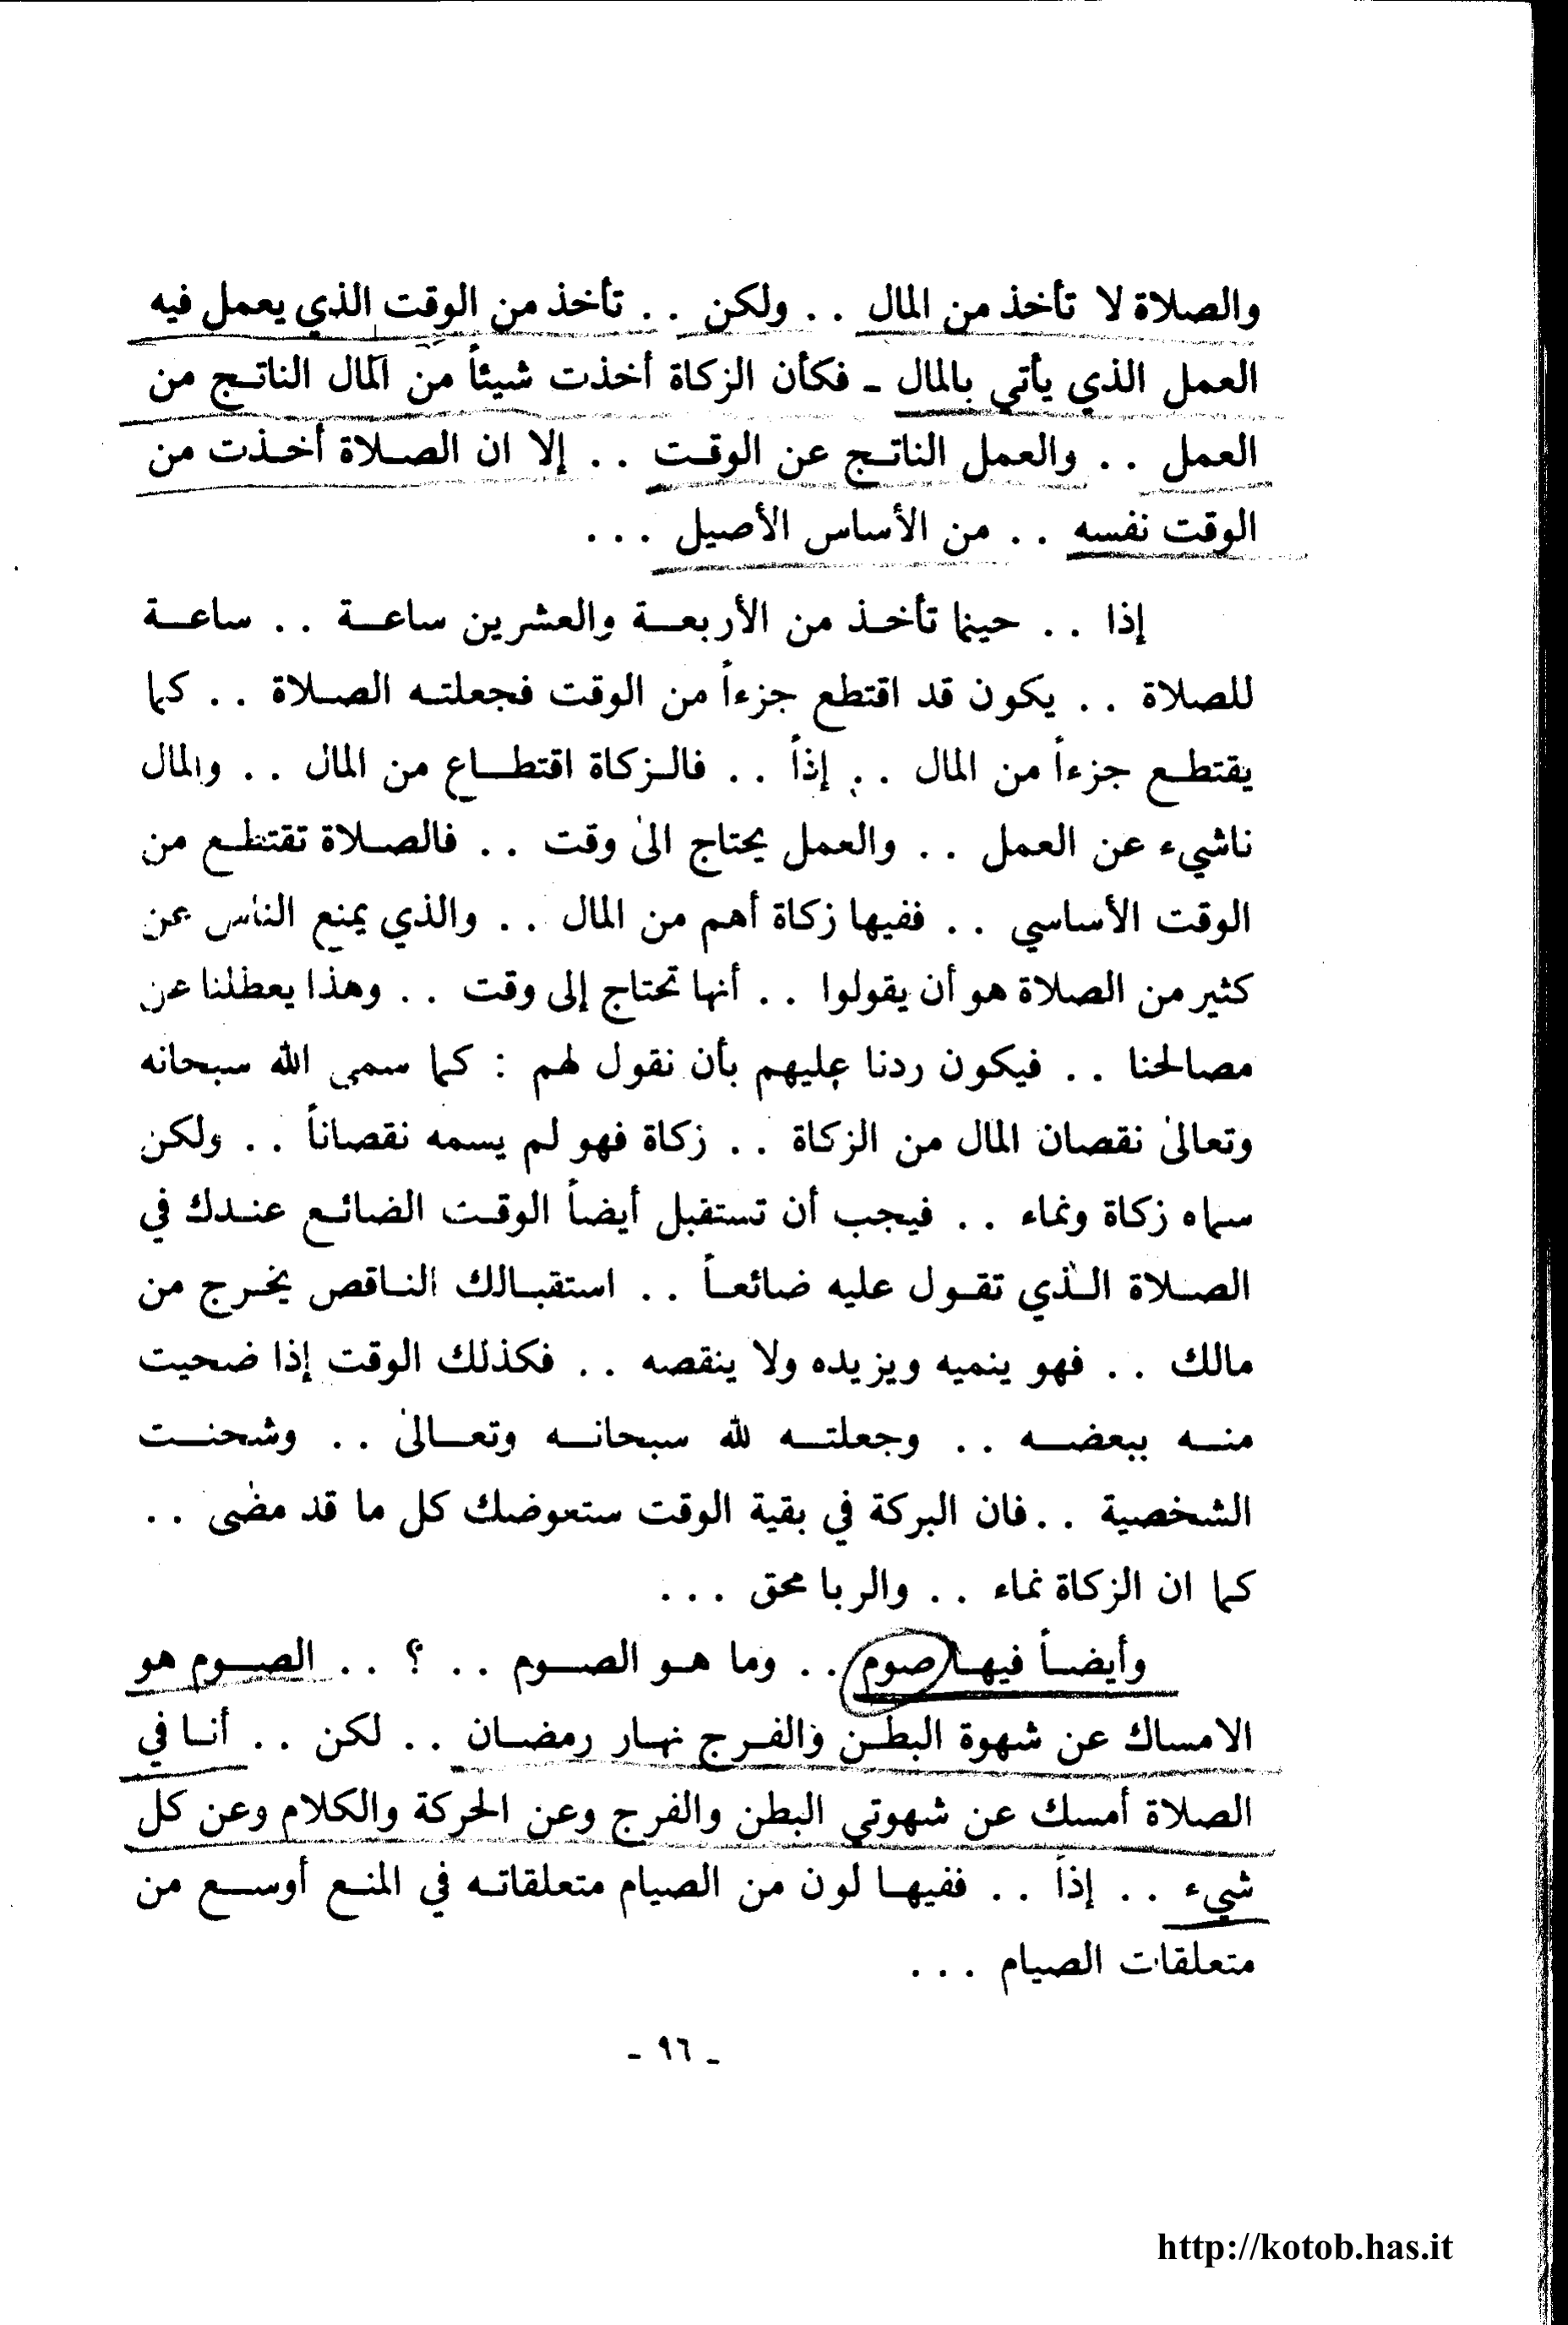 والصلاة لا تأخذ من المال . . ولكن . . تأخذ من الوقت الذي يعمل فيه
العمل الذي يأتي بالمال ـ فكأن الزكاة أخذت شيئاً من المال الناتج من
العمل . . والعمل الناتج عن الوقت . . إلا ان الصلاة أخذت من
الوقت نفسه . . من الأساس الأصيل . . .
إذا . . حينما تأخذ من الأربعة والعشرين ساعة . . ساعة
للصلاة . . يكون قد اقتطع جزءاً من الوقت فجعلته الصلاة . . كما
يقتطع جزءاً من المال . . إذاً . . فالزكاة اقتطاع من المال . . والمال
ناشيء عن العمل . . والعمل يحتاج الى وقت . . فالصلاة تقتطع من
الوقت الأساسي . . ففيها زكاة أهم من المال . . والذي يمنع الناس عن
كثير من الصلاة هو أن يقولوا . . أنها تحتاج إلى وقت . . وهذا يعطلنا عن
مصالحنا . . فيكون ردنا عليهم بأن نقول لهم : كما سمى الله سبحانه
وتعالى نقصان المال من الزكاة . . زكاة فهو لم يسمه نقصاناً . . ولكن
سماه زكاة ونماء . . فيجب أن تستقبل أيضاً الوقت الضائع عندك في
الصلاة الذي تقول عليه ضائعاً . . استقبالك الناقص يخرج من
مالك . . فهو ينميه ويزيده ولا ينقصه . . فكذلك الوقت إذا ضحيت
منه ببعضه . . وجعلته لله سبحانه وتعالى . . وشحنت
الشخصية . . فان البركة في بقية الوقت ستعوضك كل ما قد مضى . .
كما ان الزكاة نماء . . والربا محق . . .
وأيضاً فيها صوم . . وما هو الصوم . . ؟ . . الصوم هو
الامساك عن شهوة البطن والفرج نهار رمضان . . لكن . . أنا في
الصلاة أمسك عن شهوتي البطن والفرج وعن الحركة والكلام وعن كل
شيء . . إذاً . . ففيها لون من الصيام متعلقاته في المنع أوسع من
متعلقات الصيام . . .
ـ ٩٦ ـ
http://kotob.has.it